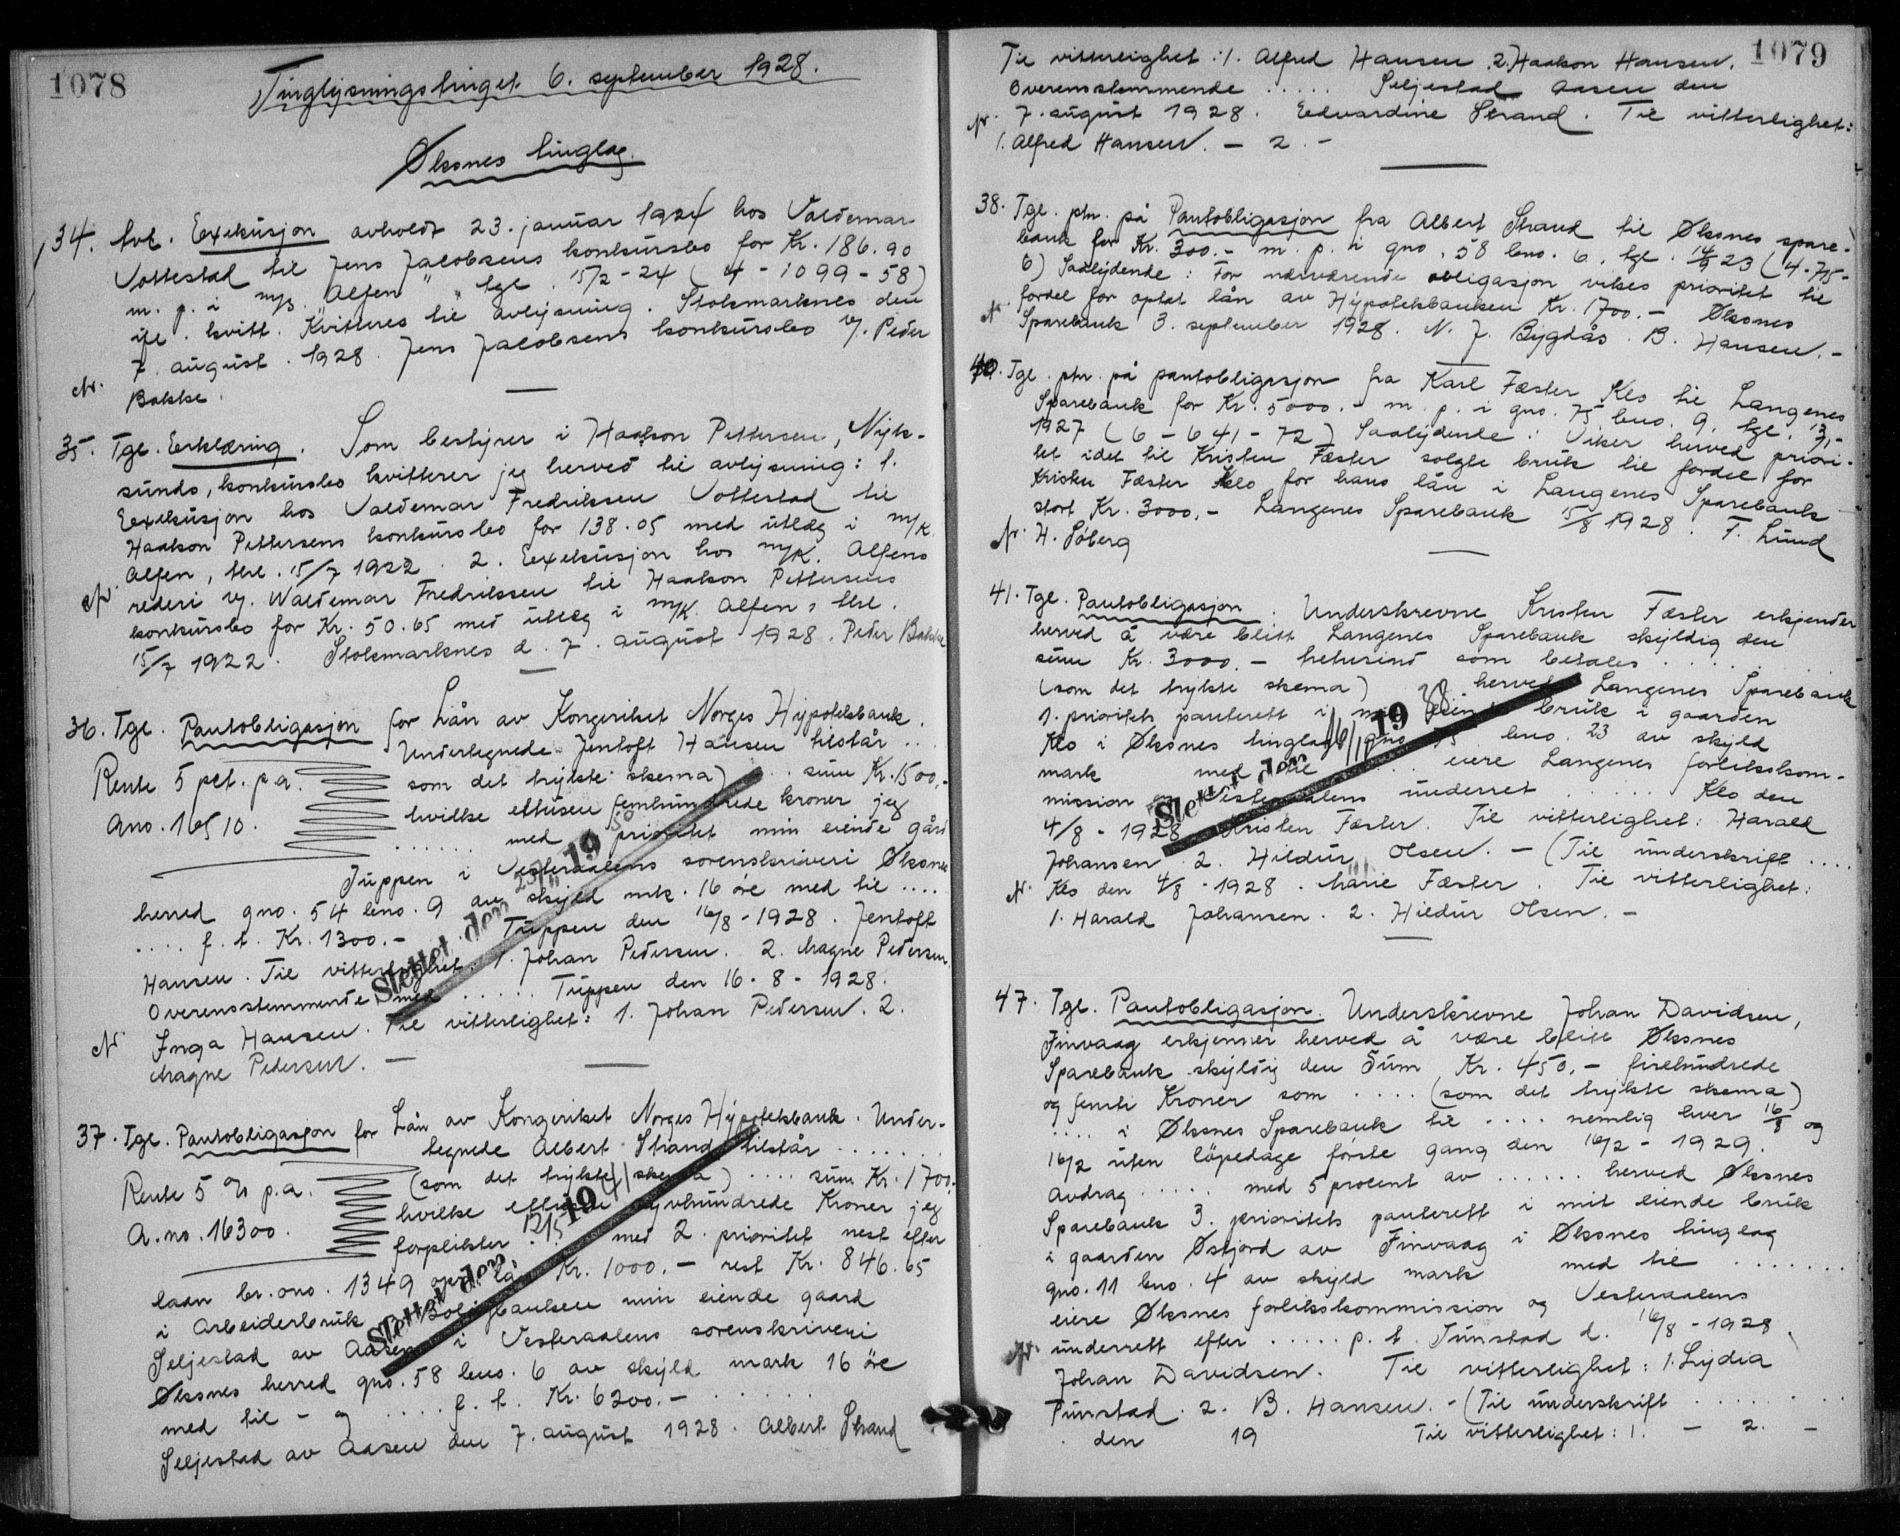 1078
Tinglysningstinget 6. september 1928.
Øksnes tinglag.
34. Avl. Exekusjon avholdt 23. januar 1924 hos Valdemar
Vottestad til Jens Jacobsens konkursbo for Kr. 186.90
m. p. i m/s. "Alfen" tgl. 15/2-24 (4-1099-58)
ifl. kvitt. Kvitteres til avlysning. Stokmarknes den
7. august 1928. Jens Jacobsens konkursbo v/. Peder
Bakke.
35. Tgl. Erklæring. Som bestyrer i Haakon Pettersen, Nyk-
sunds, konkursbo kvitterer jeg herved til avlysning: 1.
Exekusjon hos Valdemar Fredriksen Vottestad til
Haakon Pettersens konkursbo for 138.05 med utlæg i m/k
Alfen, thl. 15/7 1922. 2. Exekusjon hos m/k. Alfens
rederi v/. Waldemar Fredriksen til Haakon Pettersens
konkursbo for Kr. 50.65 med utlæg i m/k. Alfen, thl.
15/7 1922. Stokmarknes d. 7. august 1928. Peder Bakke
36. Tgl. Pantobligasjon for Lån av Kongeriket Norges Hypotekbank.
Undertegnede Jentoft Hansen tilstår ..
Rente 5 pct. p.a. som det trykte skema) .. sum Kr. 1500,-
Ano. 16510. hvilke ettusen femhundrede kroner jeg
...... med prioritet min eiende gård
Tuppen i Vesteraalens sorenskriveri Øksnes
herred gno. 54 bno. 9 av skyld mrk. 16 øre med til ....
.... f. t. Kr. 1300.- Tuppen den 16/8-1928. Jentoft
Hansen. Til vitterlighet. 1. Johan Pedersen. 2. Magne Pedersen.
Overensstemmende med ..... Tuppen den 16-8-1928.
Inga Hansen. Til vitterlighet: 1. Johan Pedersen. 2.
Magne Pedersen. -
Slettet den 19
37. Tgl. Pantobligasjon for Lån av Kongeriket Norges Hypotekbank. Under-
tegnede Albert Strand tilstår .......
Rente 5 % p.a. (som det trykte skema) .... sum Kr. 1700.
A.no. 16300. hvilke ettusen syvhundrede Kroner jeg
forplikter ... med 2. prioritet nest efter
laan br. ono. 1349 opr. la. Kr. 1000.- rest Kr. 846.65
i Arbeiderbruk & Boligbanken min eiende gaard
Seljestad av Aasen i Vesteraalens sorenskriveri
Øksnes herred gno. 58 bno. 6 av skyld mark 16 öre
med til - og .... f. t. Kr. 6200.- ......
Seljestad av Aasen den 7. august 1928. Albert Strand
Slettet den 19
1079
Til vitterlighet: 1. Alfred Hansen 2. Haakon Hansen.
Overensstemmende ..... Seljestad Aasen den
7. august 1928. Edvardine Strand. Til vitterlighet:
1. Alfred Hansen. - 2. -
38. Tgl. ptn. på Pantobligasjon fra Albert Strand til Øksnes spare-
bank for Kr. 300.- m. p. i gno. 58 bno. 6. tgl. 14/9 23 (4-
6) Saalydende: For nærværende obligasjon vikes prioritet til
fordel for optat lån av Hypotekbanken Kr. 1700.- Øksnes
Sparebank 3. september 1928. N. J. Bygdås. B. Hansen.-
40. Tgl. ptn. på pantobligasjon fra Karl Fæster Klo til Langenes
Sparebank for Kr. 5000.- m. p. i gno. 75 bno. 9. tgl.
1927 (6-641-72) Saalydende: Viker herved priori-
tet idet til Kristen Fæster solgte bruk til fordel for
Kristen Fæster Klo for hans lån i Langenes Sparebank
stort Kr. 3000.- Langenes Sparebank 15/8 1928. F. Lund
H. Söberg
41. Tgl. Pantobligasjon. Underskrevne Kristen Fæster erkjender
herved å være blitt Langenes Sparebank skyldig den
sum Kr. 3000.- tretusind som betales .....
(som det trykte skema) herved Langenes Sparebank
1. prioritets panterett i min eiende bruk i gaarden
Klo i Øksnes tinglag gno 75 bno. 23 av skyld
mark med til .... eiere Langenes forlikskom-
mission og Vesteraalens underret ..... Klo den
4/8-1928 Kristen Fæster. Til vitterlighet: Harald
Johansen 2. Hildur Olsen. - (Til underskrift ....
Klo den 4/8-1928. Marie Fæster. Til vitterlighet:
1. Harald Johansen. 2. Hildur Olsen. -
Slettet den 19
47. Tgl. Pantobligasjon. Underskrevne Johan Davidsen,
Finvaag erkjenner herved å være bleit Øksnes
Sparebank skyldig den Sum Kr. 450.- firehundrede
og femti Kroner som .... (som det trykte skema)
.... i Øksnes Sparebank til .... nemlig hver 16/8 og
16/2 uten löpedage förste gang den 16/2-1929.
Avdrag ..... med 5 procent av ...... herved Øksnes
Sparebank 3. prioritets panterett i mit eiende bruk
i gaarden Østjord av Finvaag i Øksnes tinglag
gno. 11 bno. 4 av skyld mark med til .......
eiere Øksnes forlikskommission og Vesteraalens
underrett efter ..... p. t. Tunstad d. 16/8-1928.
Johan Davidsen. Til vitterlighet: 1. Lydia
Tunstad. 2. B. Hansen. - (Til underskrift ......
den 19 Til vitterlighet: 1. - 2. -